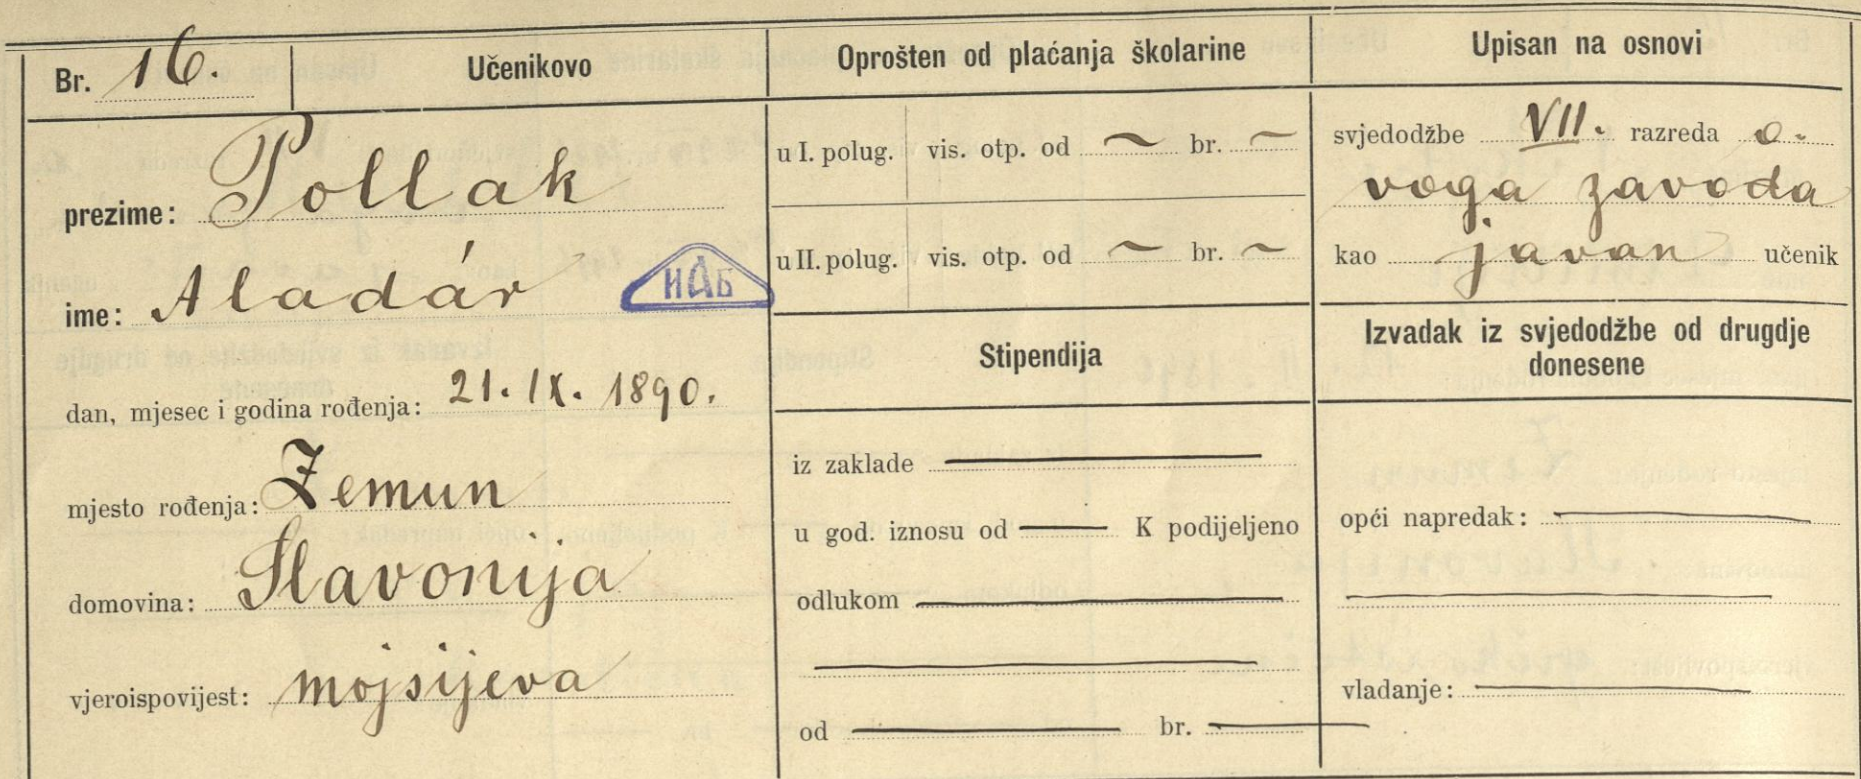 Br. 16.
Učenikovo
prezime: Pollak
ime: Aladár
ИАБ
dan, mjesec i godina rođenja: 21. IX. 1890.
mjesto rođenja: Zemun
domovina: Slavonija
vjeroispovijest: mojsijeva
Oprošten od plaćanja školarine
u I. polug. vis. otp. od ~ br. ~
u II. polug. vis. otp. od ~ br. ~
Stipendija
iz zaklade —
u god. iznosu od — K podijeljeno
odlukom —
od — br. —
Upisan na osnovi
svjedodžbe VII. razreda o-
voga zavoda
kao javan učenik
Izvadak iz svjedodžbe od drugdje
donesene
opći napredak: —
vladanje: —